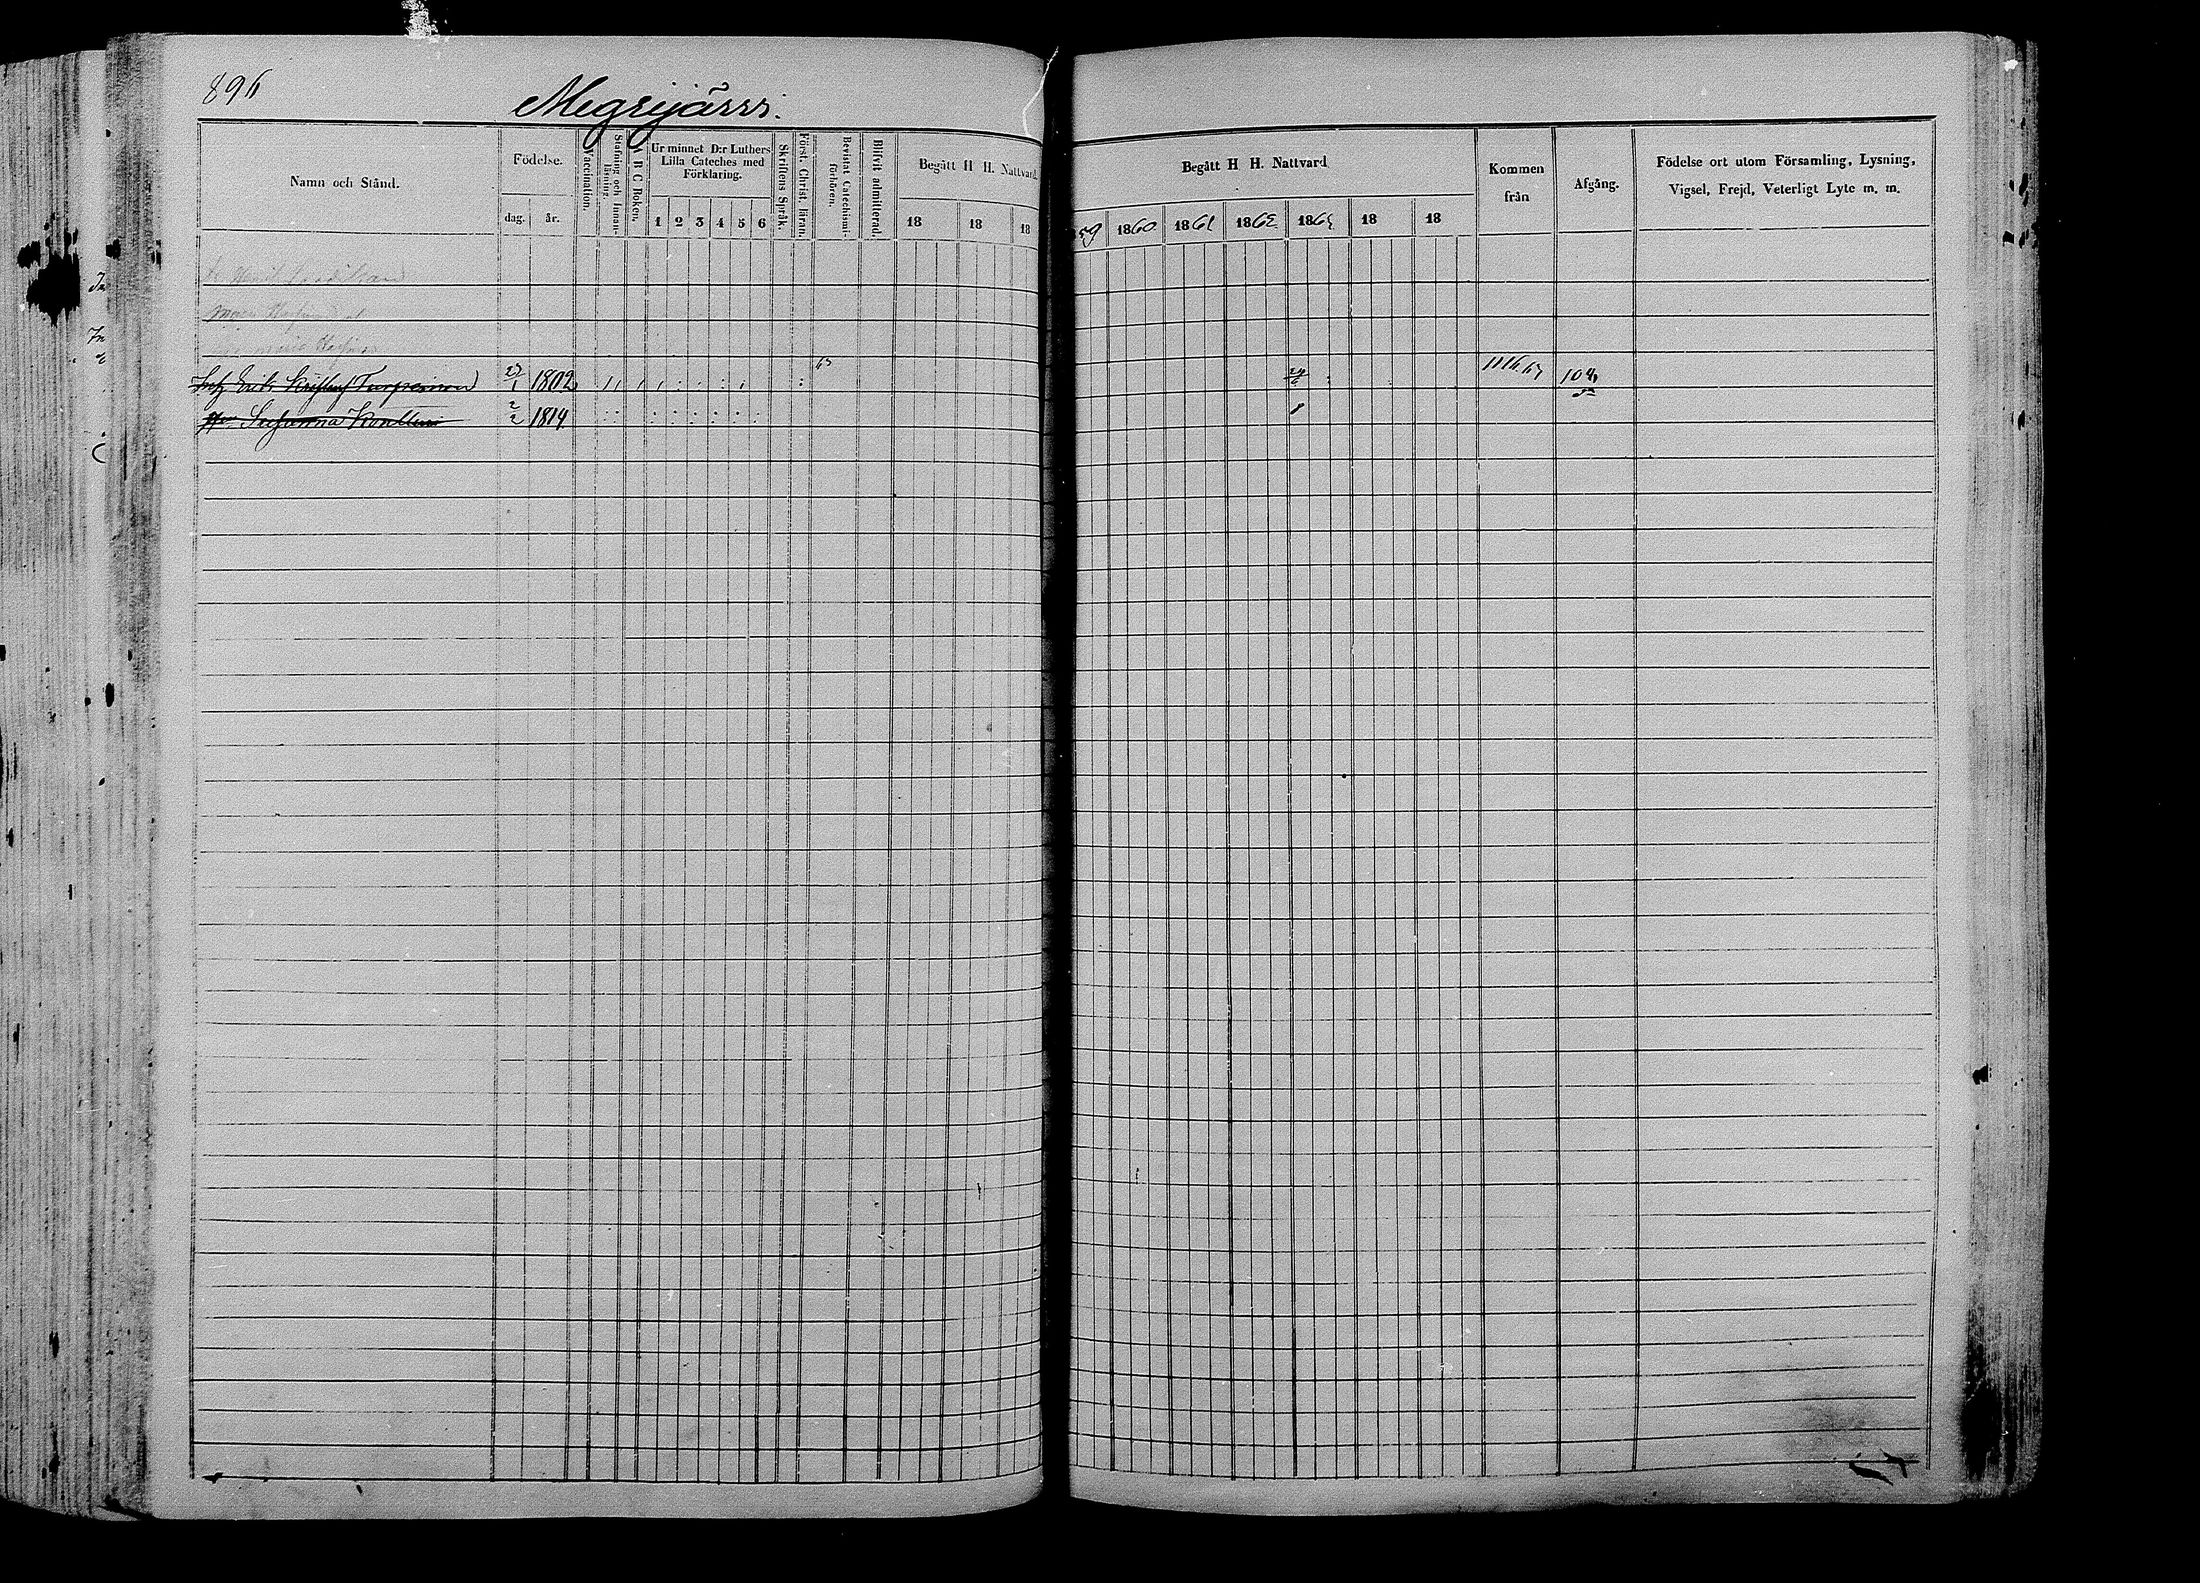 896
Megrijärvi.
Namn och Stånd.
Födelse.
dag. år.
Vaccination.
Stafning och Innanläsning.
A B C Boken.
Ur minnet D:r Luthers Lilla Cateches med Förklaring.
1 2 3 4 5 6
Skriftens Språk.
Först. Christ. läran.
Bevistat Catechismiförhören.
Blifvit admitterad.
Begått H H. Nattvard.
18 18 18
Begått H H. Nattvard
59 1860 1861 1862 1863 18 18
Kommen från
Afgång.
Födelse ort utom Församling, Lysning, Vigsel, Frejd, Veterligt Lyte m. m.
Erik 27/1 1802 63 1116 63 104
Hu. Susanna 2/2 1814